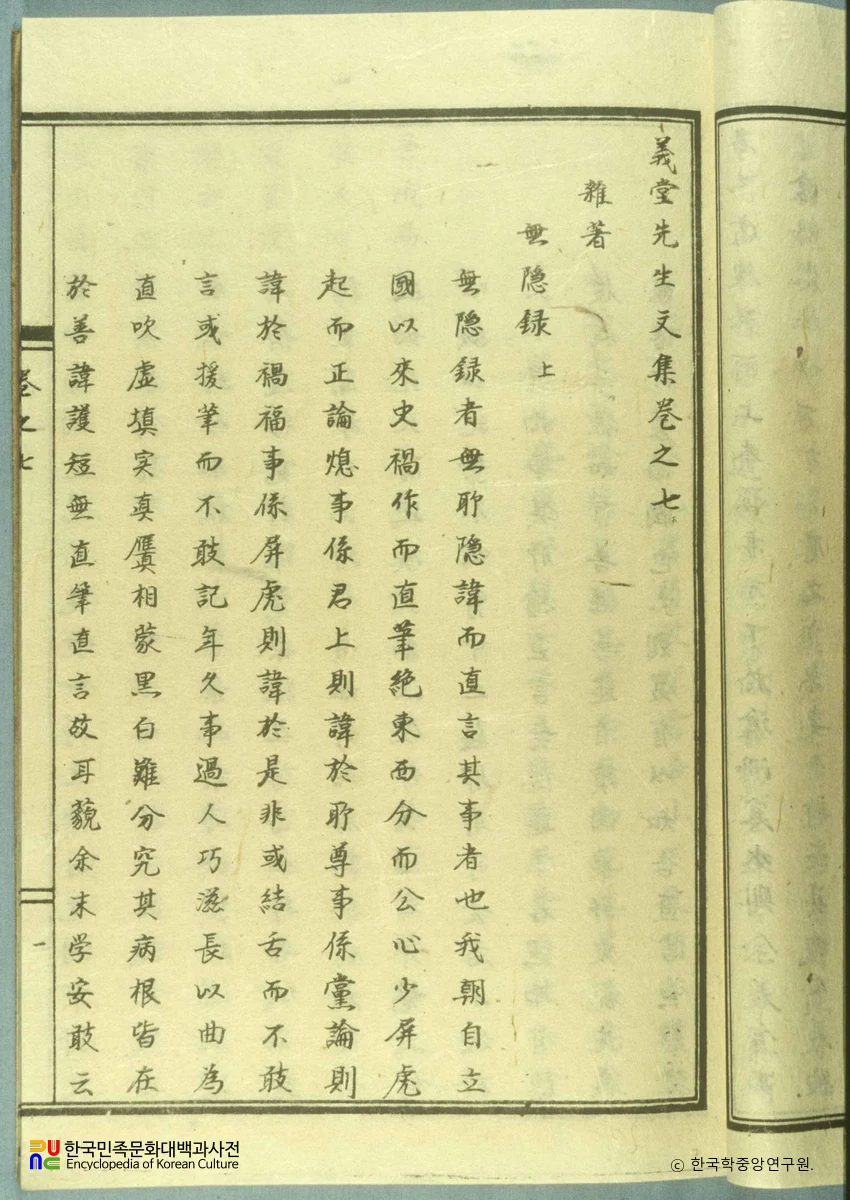 義堂先生文集卷之七
雜著
無隠録 上
無隠録者無所隠諱而直言其事者也我朝自立
國以來史禍作而直筆絶東西分而公心少屏虎
起而正論熄事係君上則諱於所尊事係黨論則
諱於禍福事係屏虎則諱於是非或結舌而不敢
言或援筆而不敢記年久事過人巧滋長以曲為
直吹虛填实真贗相蒙黑白難分究其病根皆在
於善諱護短無直筆直言故耳藐余末学安敢云
卷之七
一
한국민족문화대백과사전
Encyclopedia of Korean Culture
© 한국학중앙연구원.